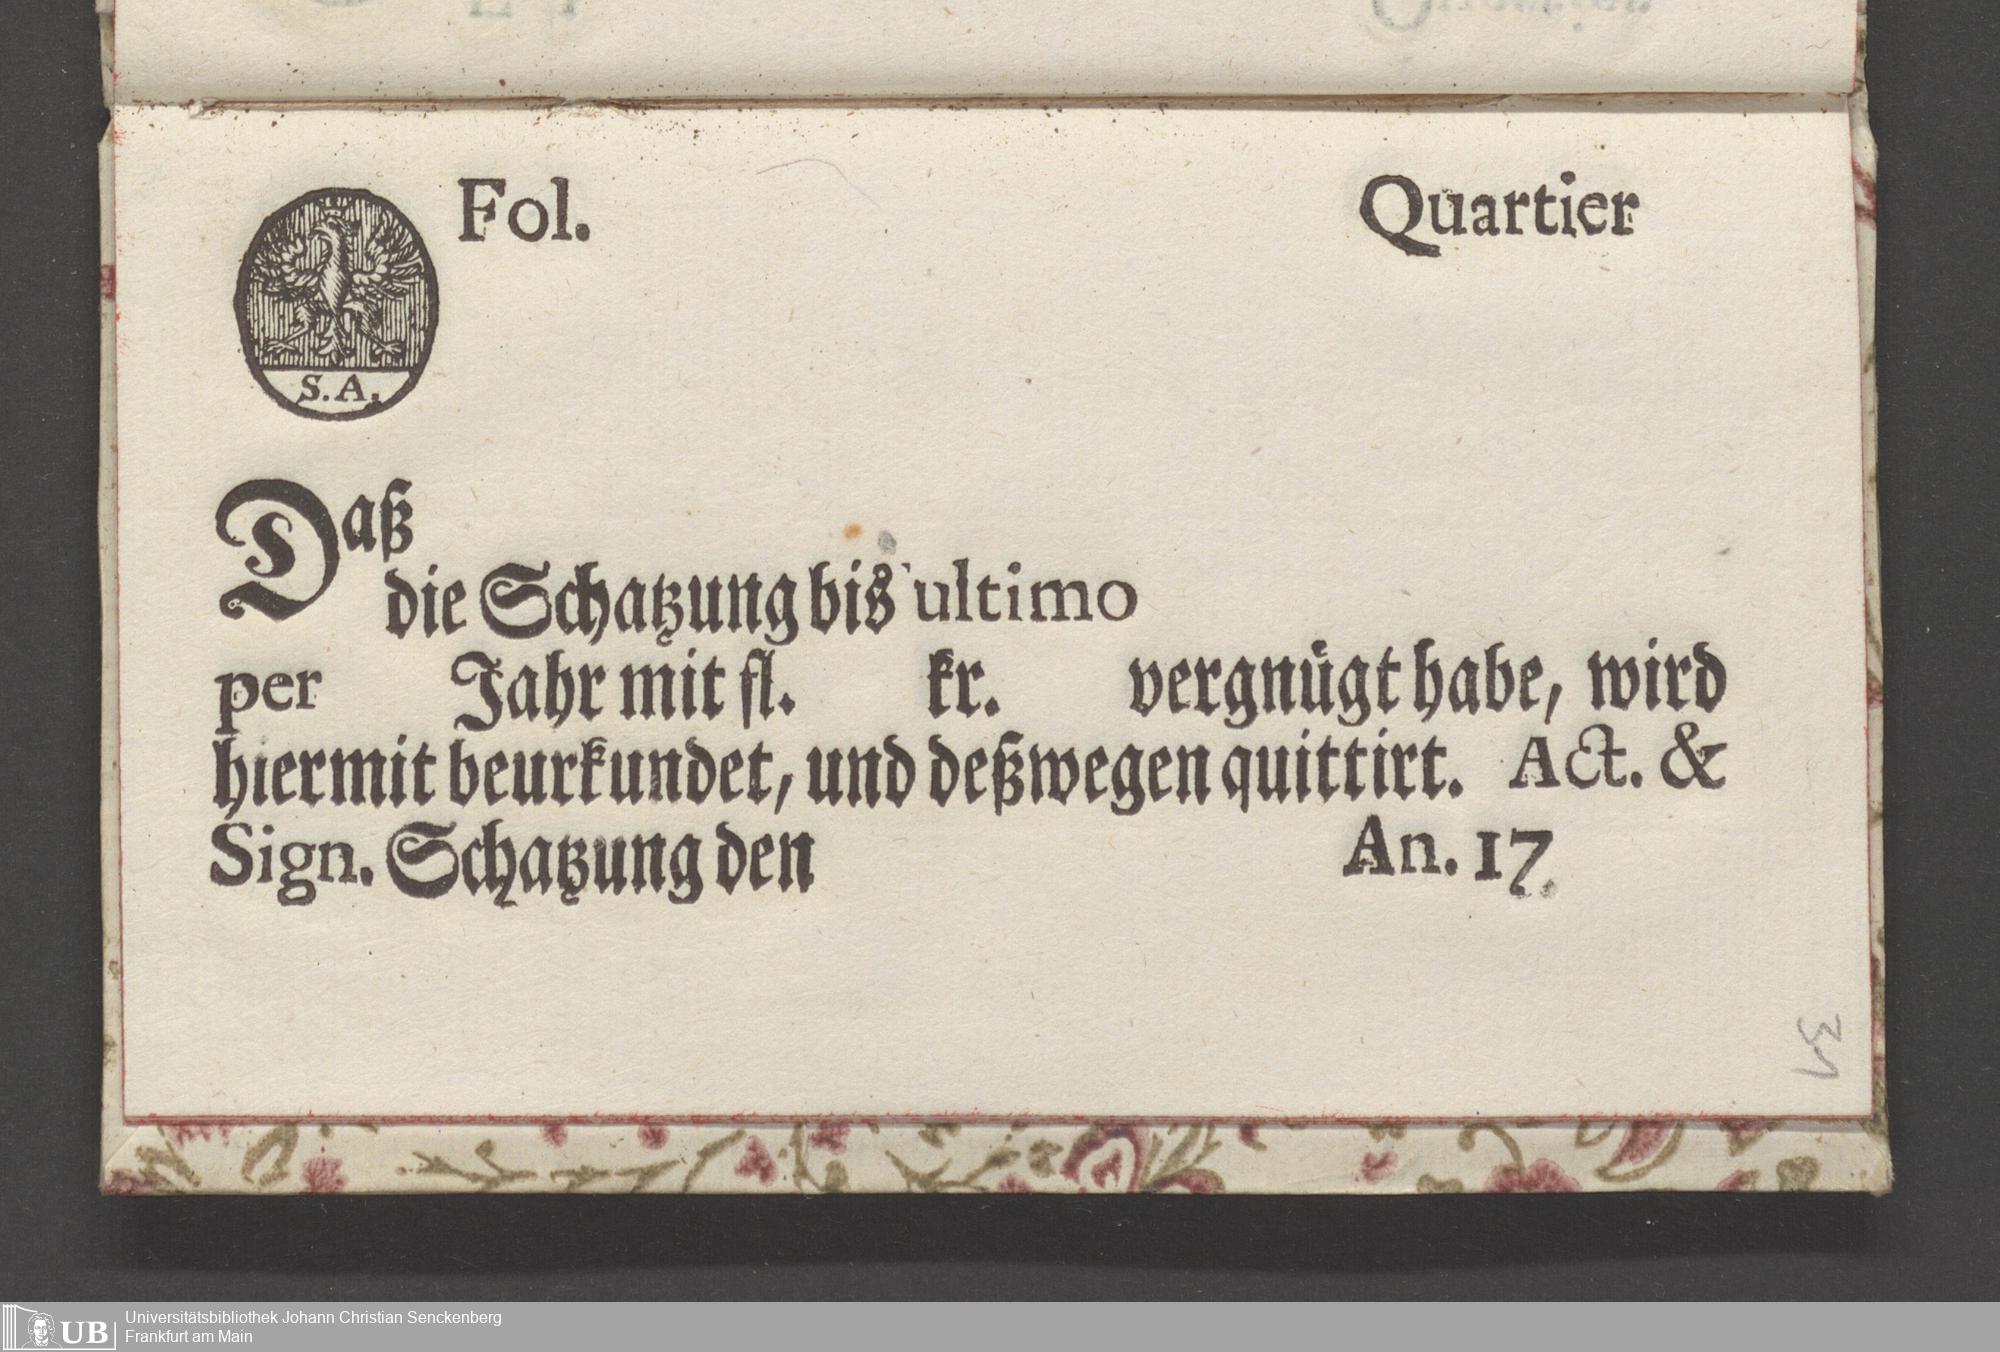 Fol. Quartier
S. A.
Daß
die Schatzung bis ultimo
per Jahr mit fl. kr. vergnügt habe, wird
hiermit beurkundet, und deßwegen quittirt. Act. &
Sign. Schatzung den An. 17
31
Universitätsbibliothek Johann Christian Senckenberg
Frankfurt am Main
UB